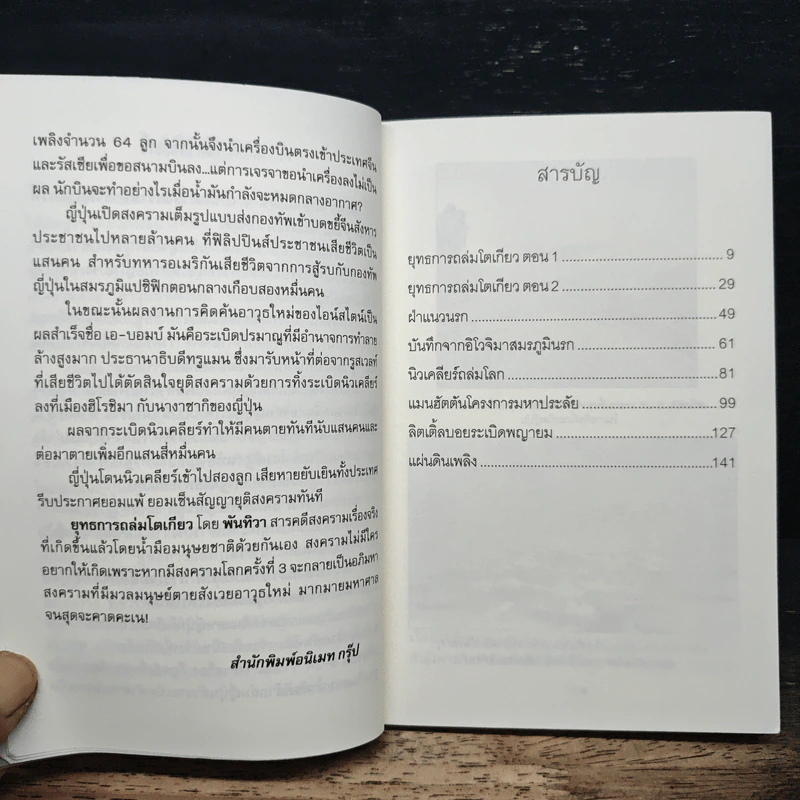 เพลิงจำนวน 64 ลูก จากนั้นจึงนำเครื่องบินตรงเข้าประเทศจีน
และรัสเซียเพื่อขอสนามบินลง...แต่การเจรจาขอนำเครื่องลงไม่เป็น
ผล นักบินจะทำอย่างไรเมื่อน้ำมันกำลังจะหมดกลางอากาศ?
ญี่ปุ่นเปิดสงครามเต็มรูปแบบส่งกองทัพเข้าบดขยี้จีนสังหาร
ประชาชนไปหลายล้านคน ที่ฟิลิปปินส์ประชาชนเสียชีวิตเป็น
แสนคน สำหรับทหารอเมริกันเสียชีวิตจากการสู้รบกับกองทัพ
ญี่ปุ่นในสมรภูมิแปซิฟิกตอนกลางเกือบสองหมื่นคน
ในขณะนั้นผลงานการคิดค้นอาวุธใหม่ของไอน์สไตน์เป็น
ผลสำเร็จชื่อ เอ-บอมบ์ มันคือระเบิดปรมาณูที่มีอำนาจการทำลาย
ล้างสูงมาก ประธานาธิบดีทรูแมน ซึ่งมารับหน้าที่ต่อจากรูสเวลท์
ที่เสียชีวิตไปได้ตัดสินใจยุติสงครามด้วยการทิ้งระเบิดนิวเคลียร์
ลงที่เมืองฮิโรชิมา กับนางาซากิของญี่ปุ่น
ผลจากระเบิดนิวเคลียร์ทำให้มีคนตายทันทีนับแสนคนและ
ต่อมาตายเพิ่มอีกแสนสี่หมื่นคน
ญี่ปุ่นโดนนิวเคลียร์เข้าไปสองลูก เสียหายยับเยินทั้งประเทศ
รีบประกาศยอมแพ้ ยอมเซ็นสัญญายุติสงครามทันที
ยุทธการถล่มโตเกียว โดย พันทิวา สารคดีสงครามเรื่องจริง
ที่เกิดขึ้นแล้วโดยน้ำมือมนุษยชาติด้วยกันเอง สงครามไม่มีใคร
อยากให้เกิดเพราะหากมีสงครามโลกครั้งที่ 3 จะกลายเป็นอภิมหา
สงครามที่มีมวลมนุษย์ตายสังเวยอาวุธใหม่ มากมายมหาศาล
จนสุดจะคาดคะเน!
สำนักพิมพ์อนิเมท กรุ๊ป
สารบัญ
ยุทธการถล่มโตเกียว ตอน 1 ........ 9
ยุทธการถล่มโตเกียว ตอน 2 ........ 29
ฝ่าแนวนรก ........ 49
บันทึกจากอิโวจิมาสมรภูมินรก ........ 61
นิวเคลียร์ถล่มโลก ........ 81
แมนฮัตตันโครงการมหาประลัย ........ 99
ลิตเติ้ลบอยระเบิดพญายม ........ 127
แผ่นดินเพลิง ........ 141